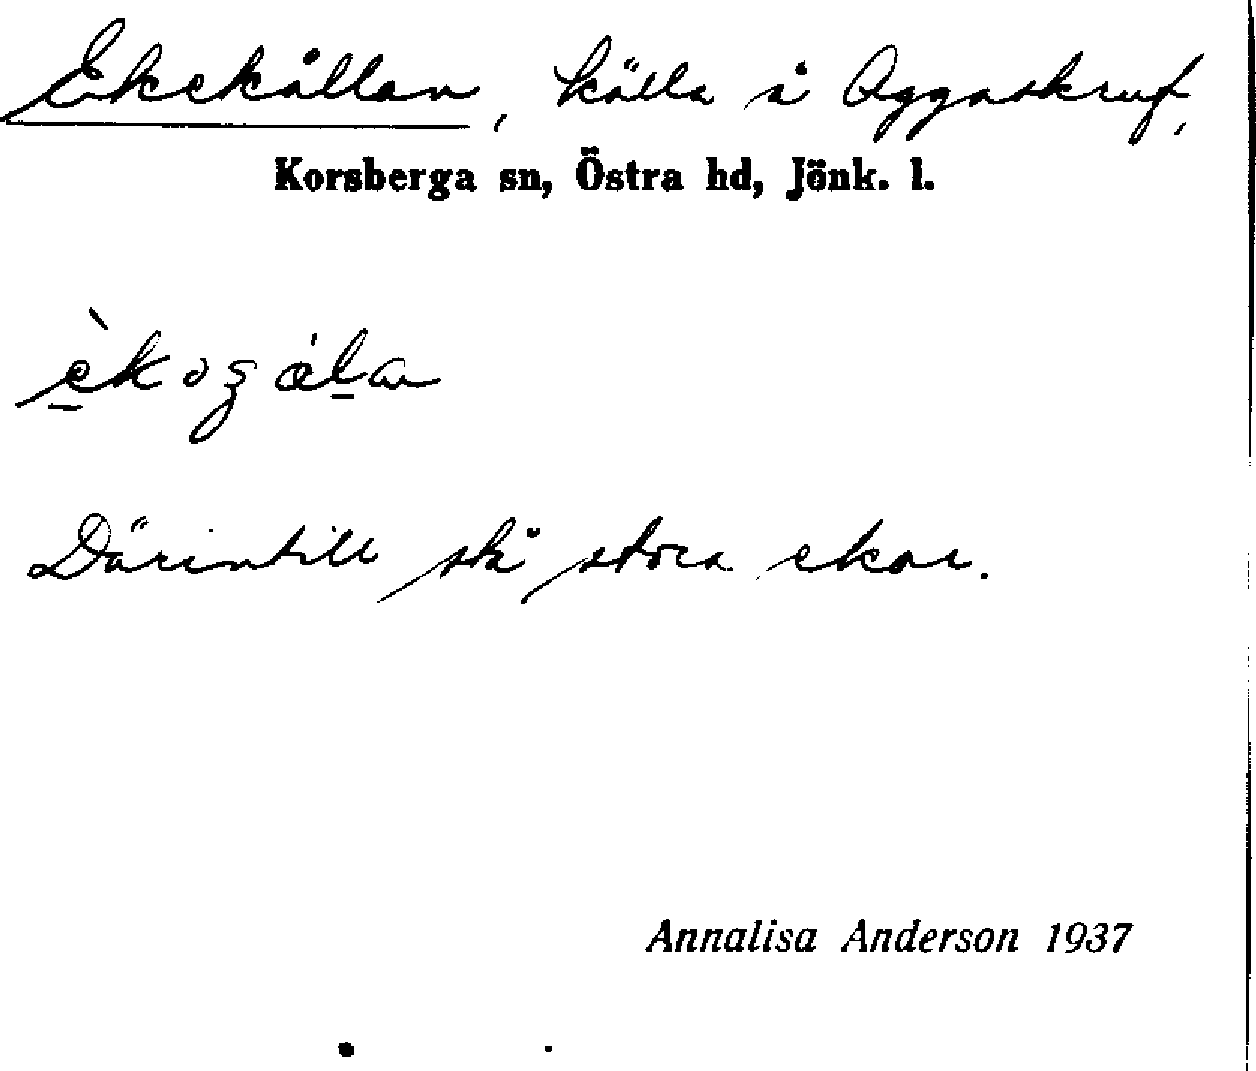 Ekekällan, källa å Aggaskruf,
Korsberga sn, Östra hd, Jönk. l.
Därintill stå stora ekar.
Annalisa Anderson 1937